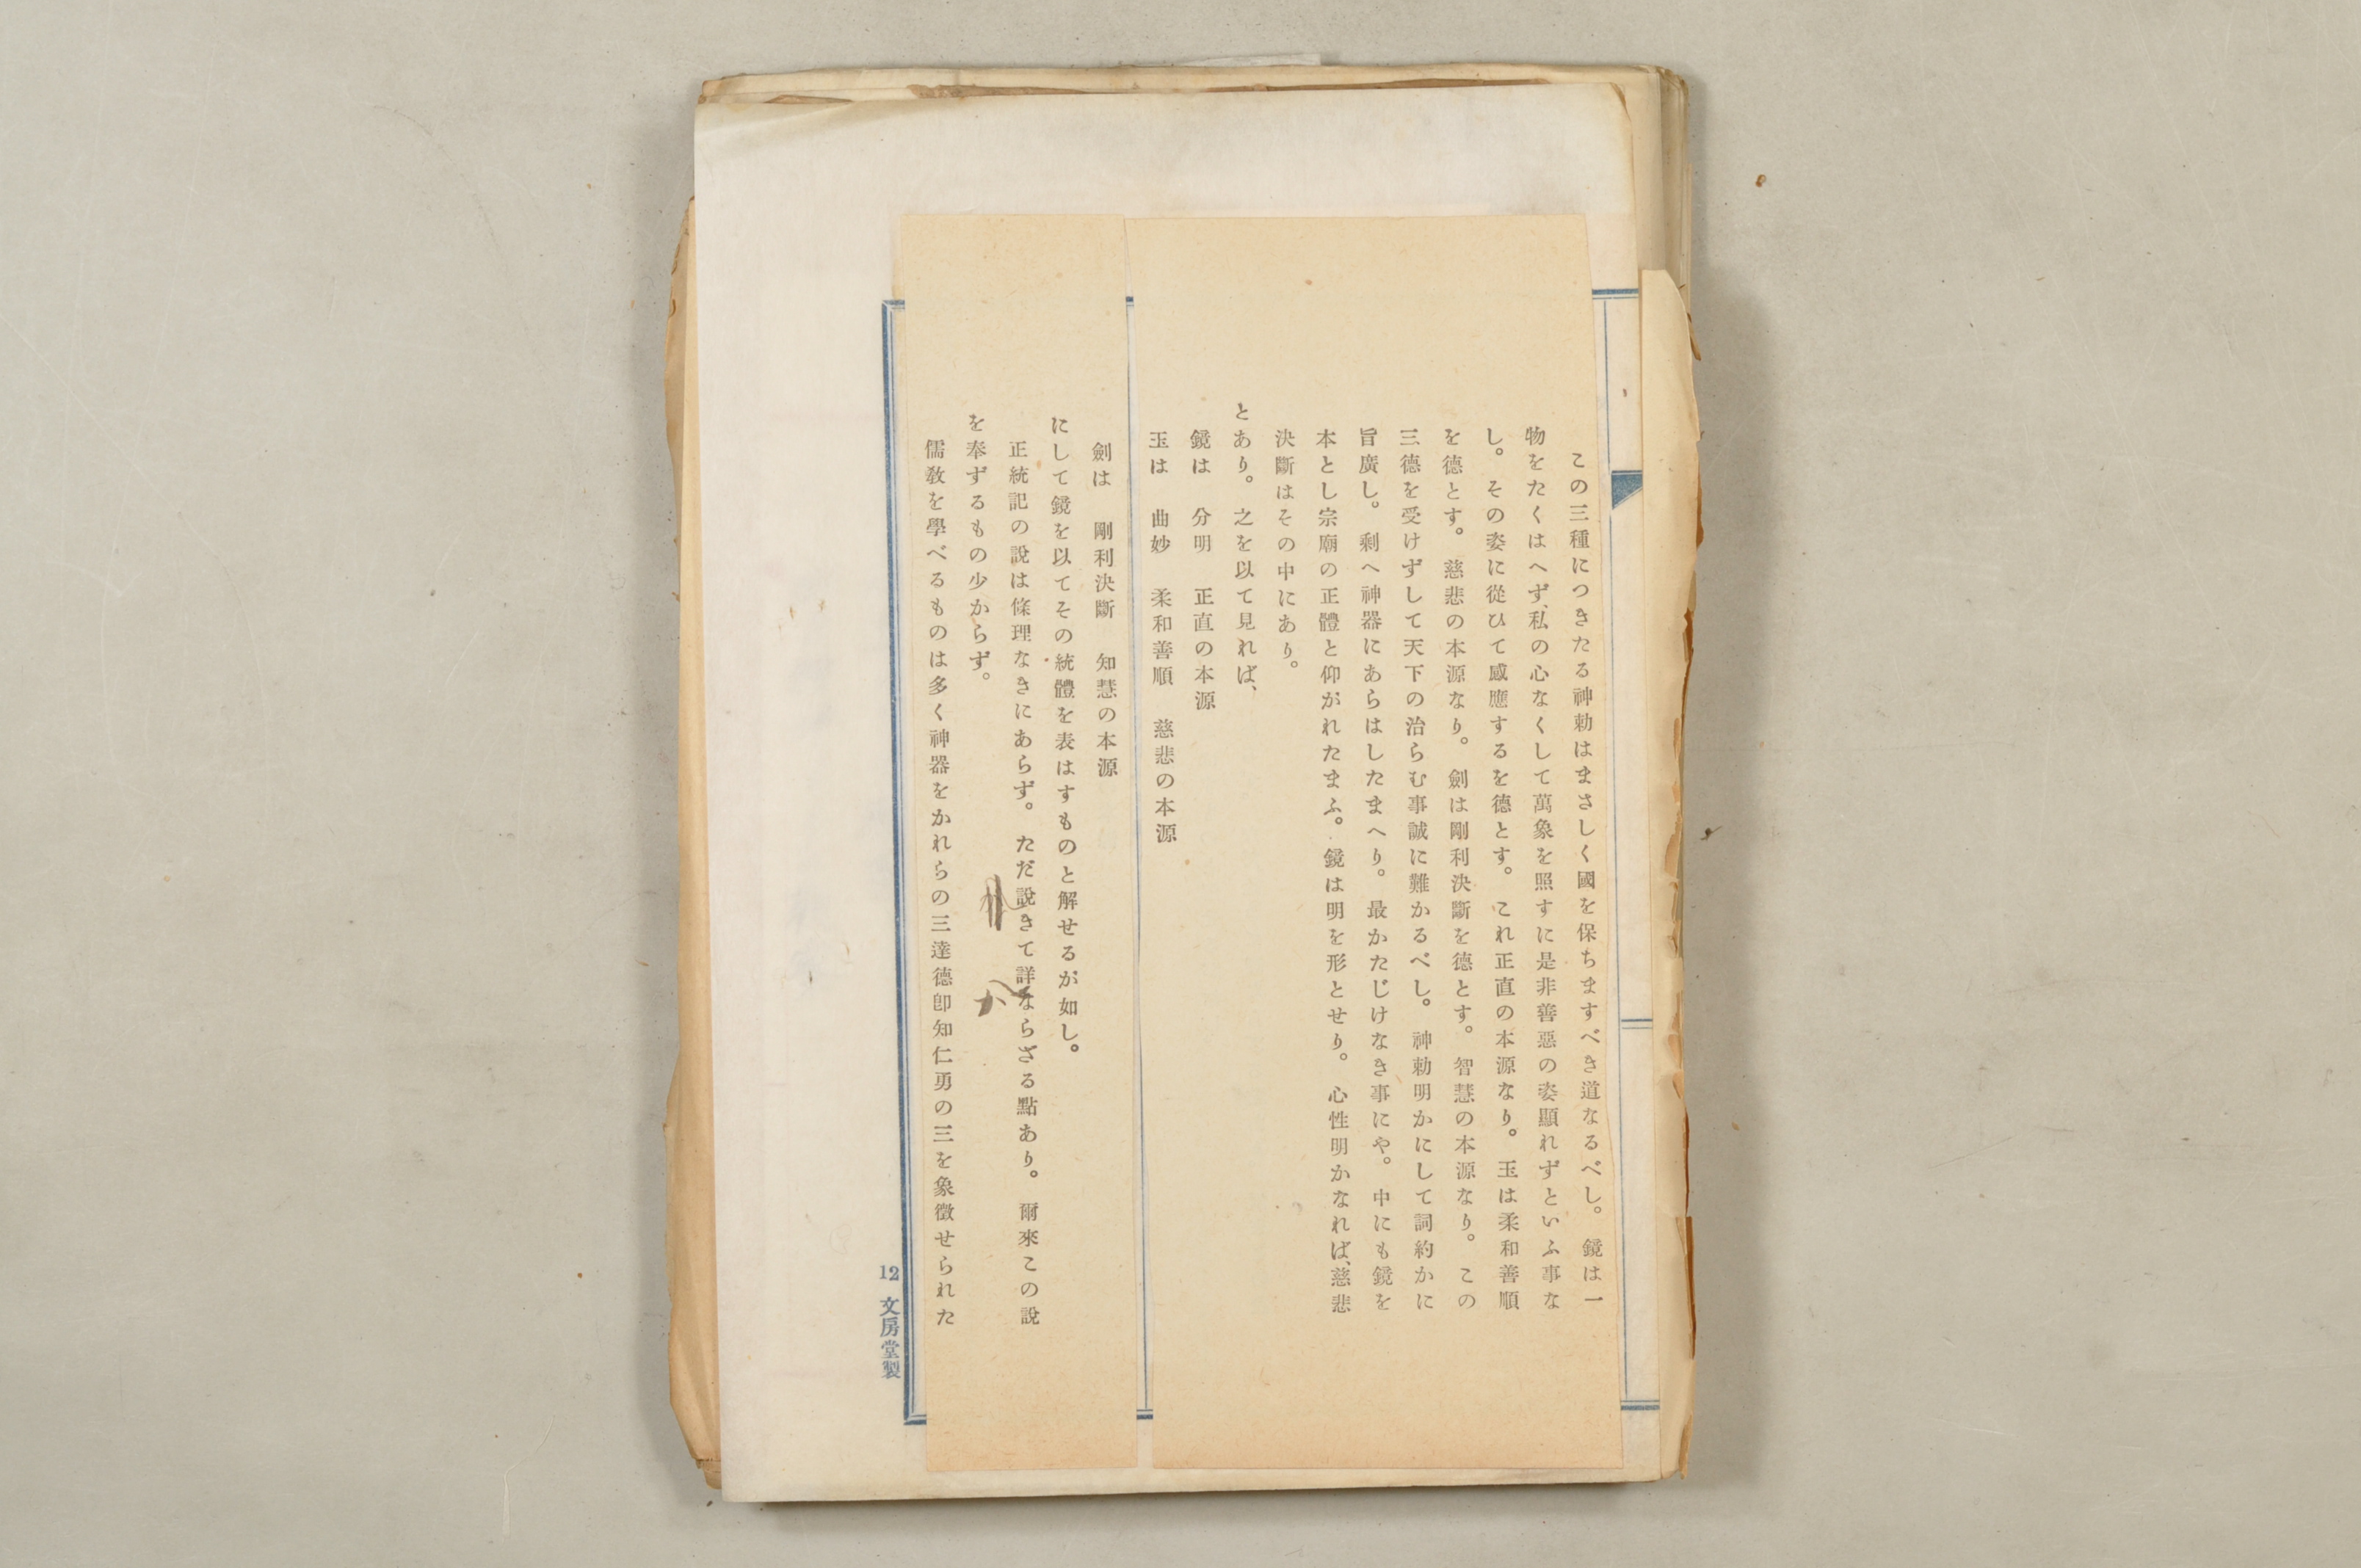 この三種につきたる神勅はまさしく國を保ちますべき道なるべし。鏡は一
物をたくはへず、私の心なくして萬象を照すに是非善惡の姿顯れずといふ事な
し。その姿に從ひて感應するを德とす。これ正直の本源なり。玉は柔和善順
を德とす。慈悲の本源なり。劍は剛利決斷を德とす。智慧の本源なり。この
三德を受けずして天下の治らむ事誠に難かるべし。神勅明かにして詞約かに
旨廣し。剩へ神器にあらはしたまへり。最かたじけなき事にや。中にも鏡を
本とし宗廟の正體と仰がれたまふ。鏡は明を形とせり。心性明かなれば、慈悲
決斷はその中にあり。
とあり。之を以て見れば、
鏡は　分明　正直の本源
玉は　曲妙　柔和善順　慈悲の本源
劍は　剛利決斷　知慧の本源
にして鏡を以てその統體を表はすものと解せるが如し。
正統記の說は條理なきにあらず。ただ說きて詳ならざる點あり。爾來この說
か
を奉ずるもの少からず。
儒敎を學べるものは多く神器をかれらの三達德卽知仁勇の三を象徵せられた
12 文房堂製